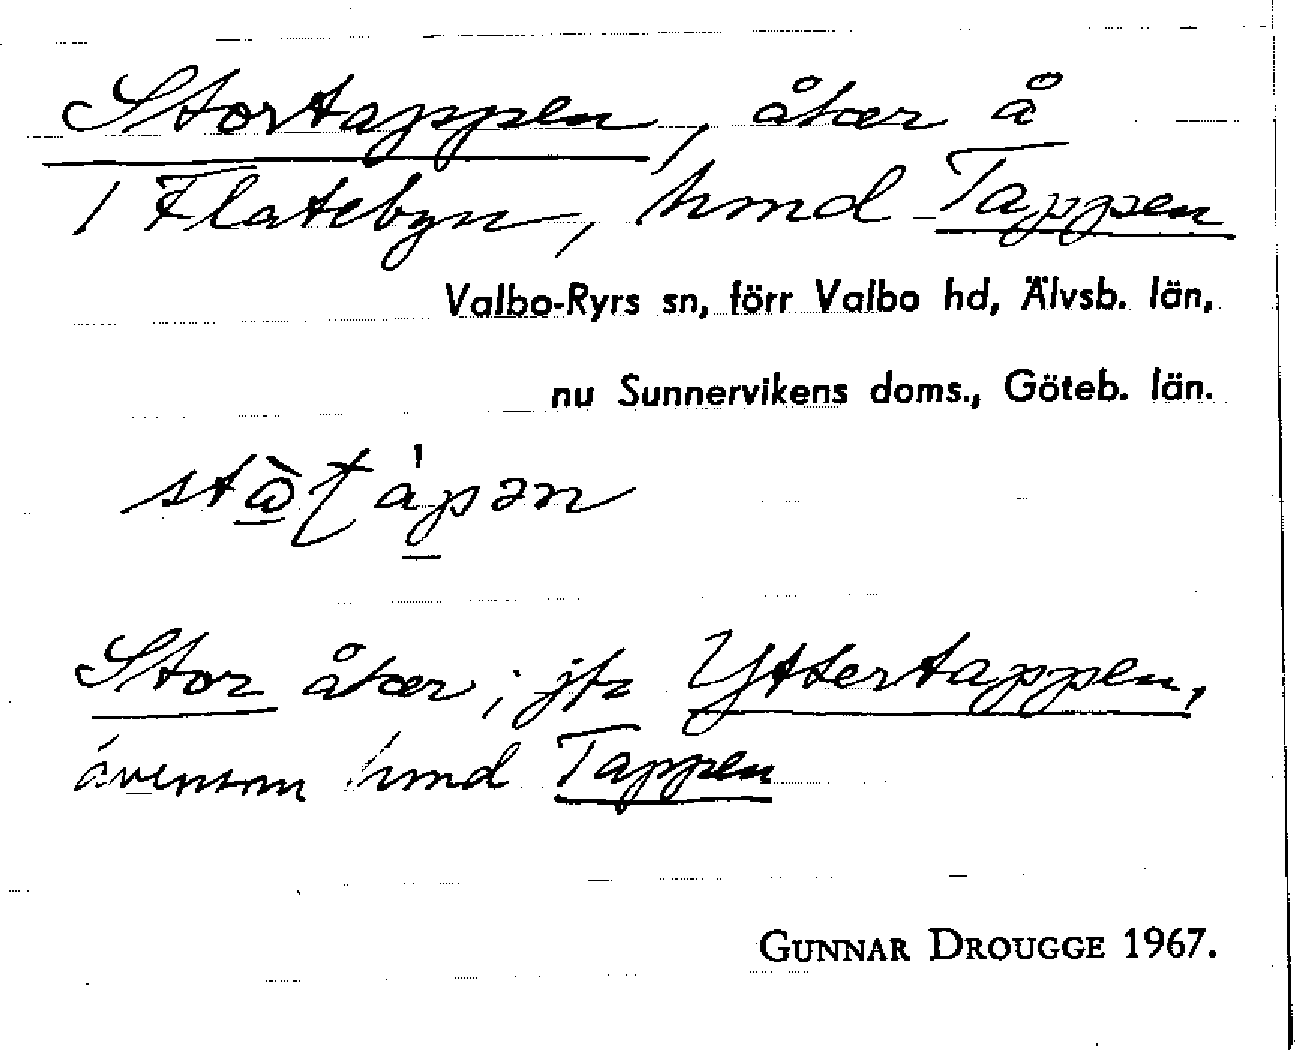 Stortappen, åker å
1 Flatebyn, hmd Tappen
Valbo-Ryrs sn, förr Valbo hd, Älvsb. län,
nu Sunnervikens doms., Göteb. län.
Stor åker; jfr Yttertappen,
ävensom hmd Tappen
GUNNAR DROUGGE 1967.